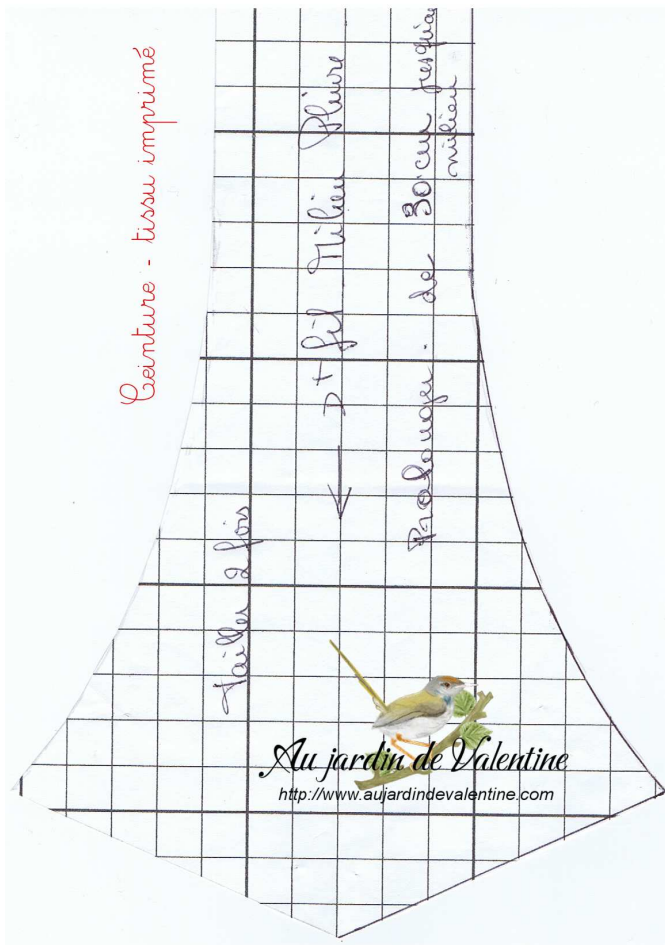 Ceinture - tissu imprimé
Tailler 2 fois
Dt fil Milieu Pliure
Prolonger de 30 cm jusqu'au
milieu
Au jardin de Valentine
http://www.aujardindevalentine.com